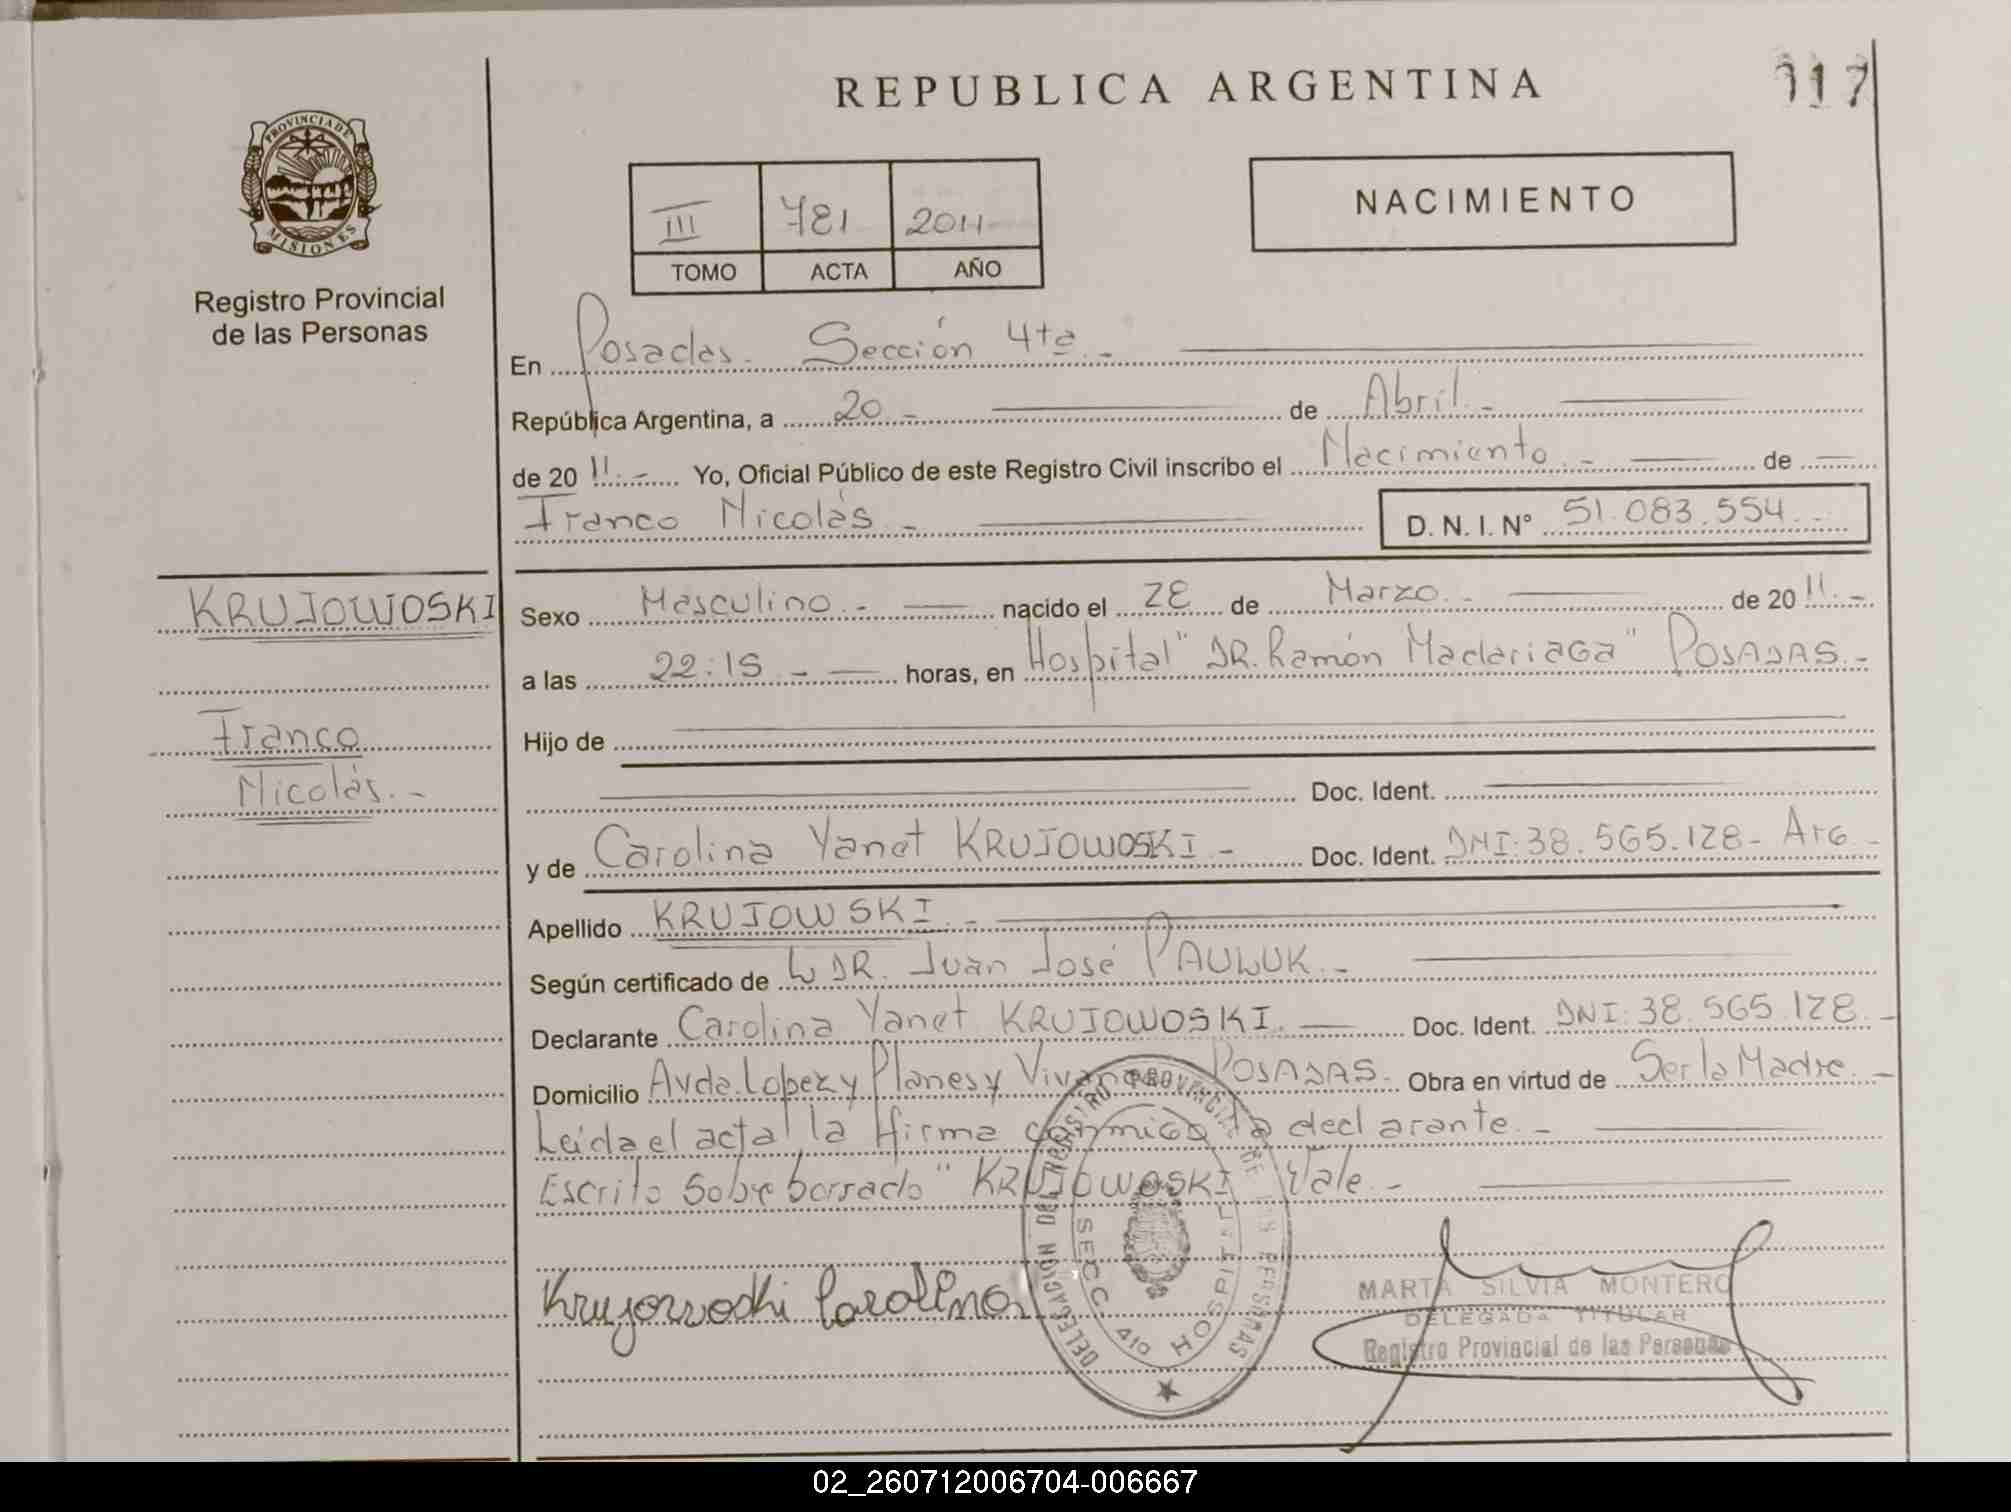 REPUBLICA ARGENTINA
117
PROVINCIA DE
MISIONES
Registro Provincial
de las Personas
III 781 2011
TOMO ACTA AÑO
NACIMIENTO
En Posadas. Sección 4ta.-
República Argentina, a 20.- de Abril.-
de 20 11.- Yo, Oficial Público de este Registro Civil inscribo el Nacimiento.- de
Franco Nicolás.- D. N. I. N° 51.083.554.-
KRUJOWOSKI
Franco
Nicolás.-
Sexo Masculino.- nacido el 28 de Marzo.- de 20 11.-
a las 22:15.- horas, en Hospital "DR. Ramón Madariaga" POSADAS.-
Hijo de
Doc. Ident.
y de Carolina Yanet KRUJOWOSKI.- Doc. Ident. DNI:38.565.128- Arg-
Apellido KRUJOWSKI.-
Según certificado de DR. Juan José PAULUK.-
Declarante Carolina Yanet KRUJOWOSKI. Doc. Ident. DNI:38.565.128.-
Domicilio Avda. Lopez y Planes y Vivanco POSADAS. Obra en virtud de Ser la Madre.-
Leída el acta la firma conmigo la declarante.-
Escrito Sobre borrado "KRUJOWOSKI Vale.-
Krujowoski Carolina
DELEGACION DEL REGISTRO PROVINCIAL DE LAS PERSONAS
SECC 4ta HOSPITAL
MARTA SILVIA MONTERO
DELEGADA TITULAR
Registro Provincial de las Personas
02_260712006704-006667